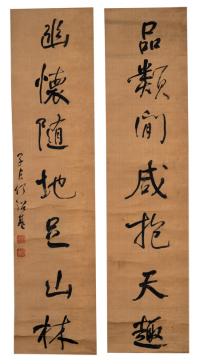 品類閒咸抱天趣
幽懷隨地足山林
子貞何紹基